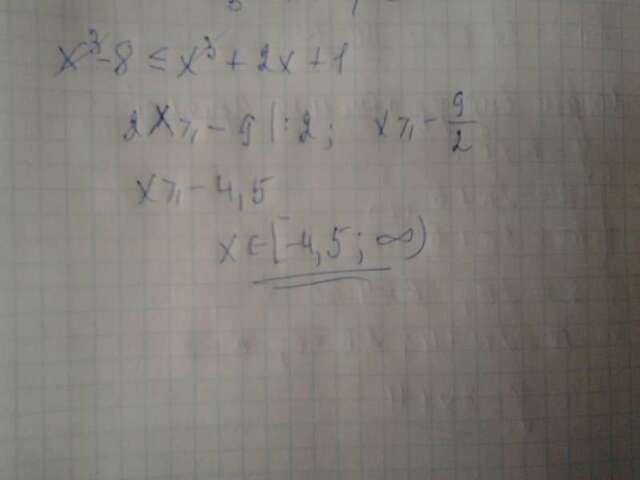 x³-8 ≤ x³ + 2x + 1
2x ⩾ - 9 |:2; x ⩾ - 9/2
x ⩾ - 4,5
x ∈ [-4,5; ∞)